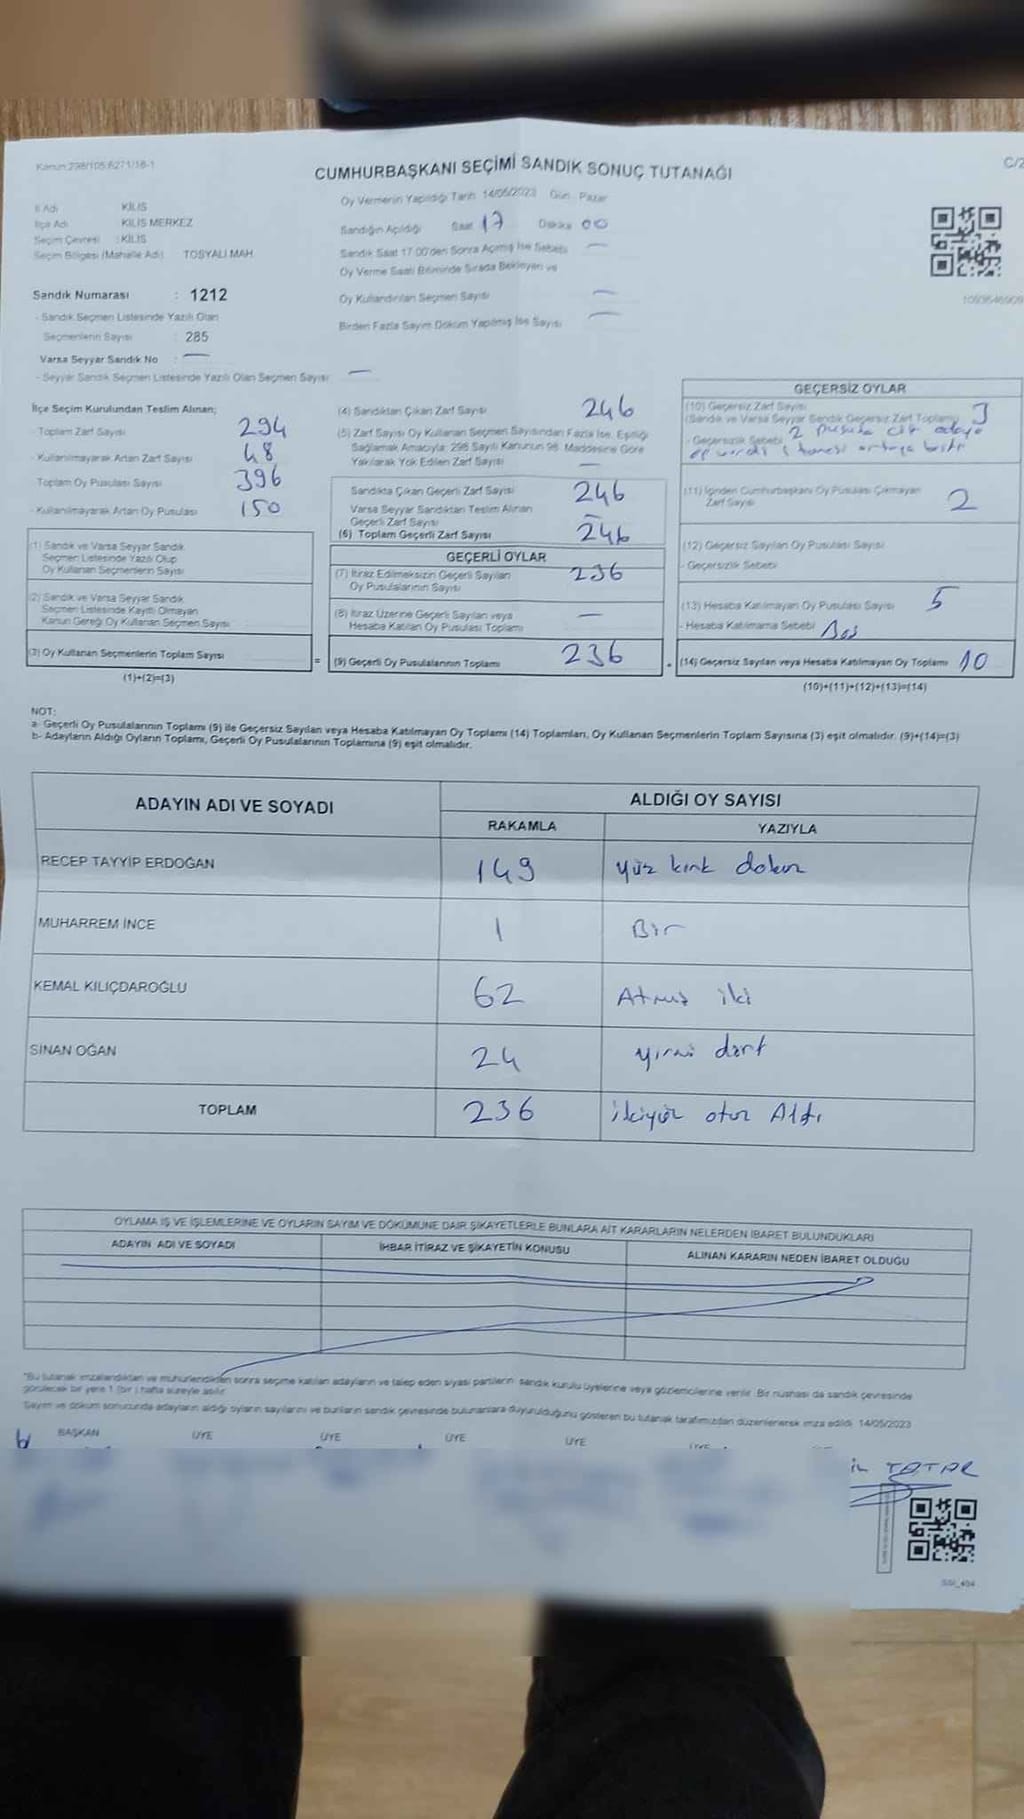 Kanun:298/105,6271/18-1
C/2
CUMHURBAŞKANI SEÇİMİ SANDIK SONUÇ TUTANAĞI
İl Adı KİLİS
İlçe Adı KİLİS MERKEZ
Seçim Çevresi : KİLİS
Seçim Bölgesi (Mahalle Adı) TOSYALI MAH.
Oy Vermenin Yapıldığı Tarih 14/05/2023 Gün Pazar
Sandığın Açıldığı Saat 17 Dakika 00
Sandık Saat 17:00'den Sonra Açılmış İse Sebebi —
Oy Verme Saati Bitiminde Sırada Bekleyen ve
Oy Kullandırılan Seçmen Sayısı —
Birden Fazla Sayım Döküm Yapılmış İse Sayısı —
Sandık Numarası : 1212
- Sandık Seçmen Listesinde Yazılı Olan
Seçmenlerin Sayısı : 285
Varsa Seyyar Sandık No : —
- Seyyar Sandık Seçmen Listesinde Yazılı Olan Seçmen Sayısı —
İlçe Seçim Kurulundan Teslim Alınan;
- Toplam Zarf Sayısı 294
- Kullanılmayarak Artan Zarf Sayısı 48
Toplam Oy Pusulası Sayısı 396
- Kullanılmayarak Artan Oy Pusulası 150
(1) Sandık ve Varsa Seyyar Sandık
Seçmen Listesinde Yazılı Olup
Oy Kullanan Seçmenlerin Sayısı
(2) Sandık ve Varsa Seyyar Sandık
Seçmen Listesinde Kayıtlı Olmayan
Kanun Gereği Oy Kullanan Seçmen Sayısı
(3) Oy Kullanan Seçmenlerin Toplam Sayısı
(1)+(2)=(3)
(4) Sandıktan Çıkan Zarf Sayısı 246
(5) Zarf Sayısı Oy Kullanan Seçmen Sayısından Fazla İse, Eşitliği
Sağlamak Amacıyla; 298 Sayılı Kanunun 98. Maddesine Göre
Yakılarak Yok Edilen Zarf Sayısı —
Sandıkta Çıkan Geçerli Zarf Sayısı 246
Varsa Seyyar Sandıktan Teslim Alınan
Geçerli Zarf Sayısı —
(6) Toplam Geçerli Zarf Sayısı 246
GEÇERLİ OYLAR
(7) İtiraz Edilmeksizin Geçerli Sayılan 236
Oy Pusulalarının Sayısı
(8) İtiraz Üzerine Geçerli Sayılan veya
Hesaba Katılan Oy Pusulası Toplamı —
= (9) Geçerli Oy Pusulalarının Toplamı 236
GEÇERSİZ OYLAR
(10) Geçersiz Zarf Sayısı 3
(Sandık ve Varsa Seyyar Sandık Geçersiz Zarf Toplamı)
- Geçersizlik Sebebi 2
(11) İçinden Cumhurbaşkanı Oy Pusulası Çıkmayan
Zarf Sayısı 2
(12) Geçersiz Sayılan Oy Pusulası Sayısı
- Geçersizlik Sebebi
(13) Hesaba Katılmayan Oy Pusulası Sayısı 5
- Hesaba Katılmama Sebebi Boş
(14) Geçersiz Sayılan veya Hesaba Katılmayan Oy Toplamı 10
(10)+(11)+(12)+(13)=(14)
NOT:
a- Geçerli Oy Pusulalarının Toplamı (9) ile Geçersiz Sayılan veya Hesaba Katılmayan Oy Toplamı (14) Toplamları, Oy Kullanan Seçmenlerin Toplam Sayısına (3) eşit olmalıdır. (9)+(14)=(3)
b- Adayların Aldığı Oyların Toplamı, Geçerli Oy Pusulalarının Toplamına (9) eşit olmalıdır.
ADAYIN ADI VE SOYADI
ALDIĞI OY SAYISI
RAKAMLA YAZIYLA
RECEP TAYYİP ERDOĞAN 149 yüz kırk dokuz
MUHARREM İNCE 1 Bir
KEMAL KILIÇDAROĞLU 62 Atmış iki
SİNAN OĞAN 24 yirmi dört
TOPLAM 236 ikiyüz otuz Altı
OYLAMA İŞ VE İŞLEMLERİNE VE OYLARIN SAYIM VE DÖKÜMÜNE DAİR ŞİKAYETLERLE BUNLARA AİT KARARLARIN NELERDEN İBARET BULUNDUKLARI
ADAYIN ADI VE SOYADI İHBAR İTİRAZ VE ŞİKAYETİN KONUSU ALINAN KARARIN NEDEN İBARET OLDUĞU
*Bu tutanak imzalandıktan ve mühürlendikten sonra seçime katılan adayların ve talep eden siyasi partilerin sandık kurulu üyelerine veya gözlemcilerine verilir. Bir nüshası da sandık çevresinde
görülecek bir yere 1 (bir) hafta süreyle asılır.
Sayım ve döküm sonucunda adayların aldığı oyların sayılarını ve bunların sandık çevresinde bulunanlara duyurulduğunu gösteren bu tutanak tarafımızdan düzenlenerek imza edildi. 14/05/2023
BAŞKAN ÜYE ÜYE ÜYE ÜYE
TATAR